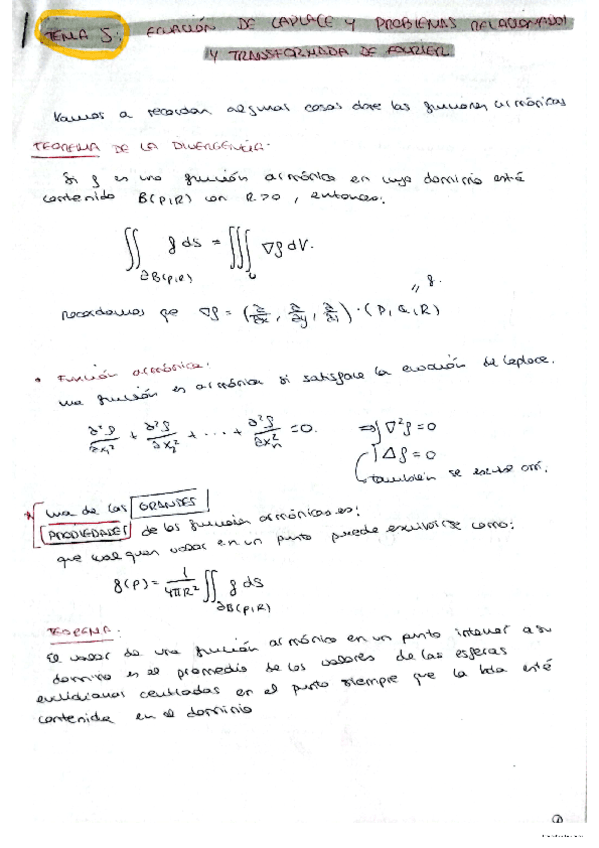 TEMA 5: ECUACIÓN DE LAPLACE Y PROBLEMAS RELACIONADOS
Y TRANSFORMADA DE FOURIER
Vamos a recordar algunas cosas sobre las funciones armónicas
TEOREMA DE LA DIVERGENCIA:
Si f es una función armónica en cuyo dominio esté
contenido B(P,R) con R>0, entonces:
∬_{∂B(P,R)} f dS = ∭ ∇f dV.
recordamos que ∇f = (∂/∂x, ∂/∂y, ∂/∂z) · (P, Q, R) " f.
• Función armónica:
una función es armónica si satisface la ecuación de Laplace.
∂²f/∂x₁² + ∂²f/∂x₂² + ··· + ∂²f/∂xₙ² = 0. ⇒ ∇²f = 0
Δf = 0
también se escribe así.
* Una de las GRANDES
PROPIEDADES de las función armónicas es:
que cualquier valor en un punto puede escribirse como:
f(P) = 1/4πR² ∬_{∂B(P,R)} f dS
TEOREMA:
El valor de una función armónica en un punto interior a su
dominio es el promedio de los valores de las esferas
euclidianas centradas en el punto siempre que la bola esté
contenida en el dominio
①